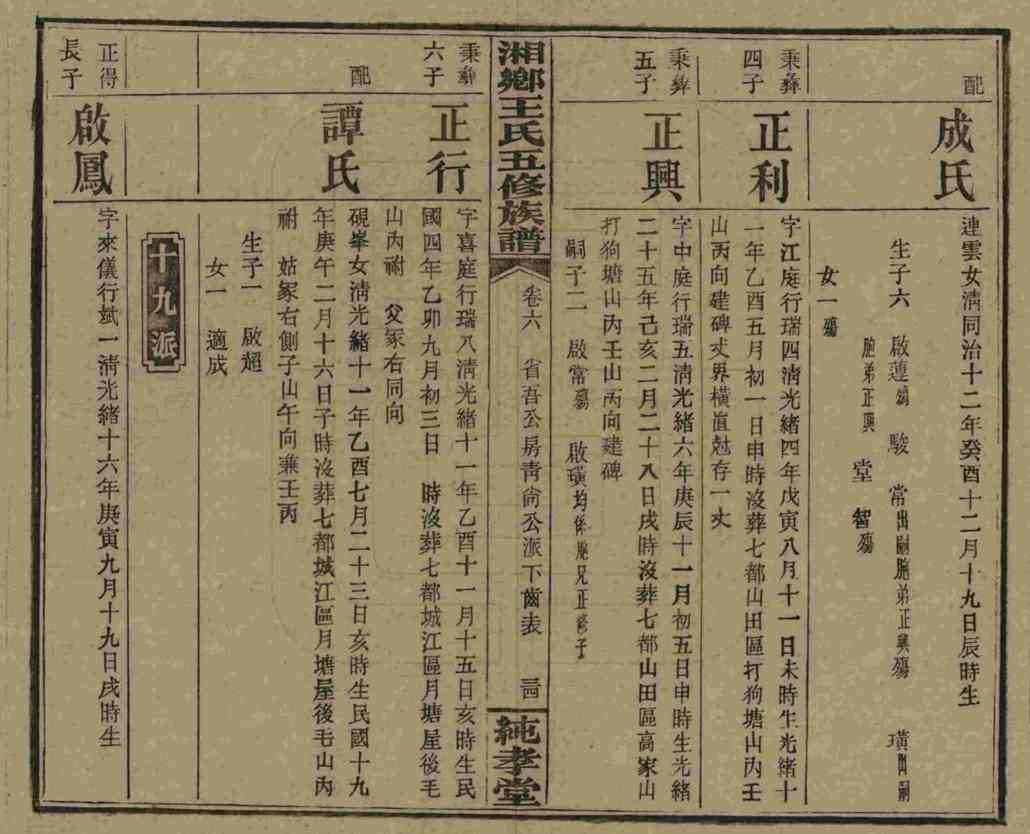 配
成氏
連雲女淸同治十二年癸酉十二月十九日辰時生
生子六　啟蓮殤　駿　常出嗣胞弟正興殤　璜出嗣
胞弟正興　堂　智殤
女一殤
秉彝
四子
正利
字江庭行瑞四淸光緒四年戊寅八月十一日未時生光緒十
一年乙酉五月初一日申時沒葬七都山田區打狗塘山內壬
山丙向建碑丈界橫直尅存一丈
秉彝
五子
正興
字中庭行瑞五淸光緒六年庚辰十一月初五日申時生光緒
二十五年己亥二月二十八日戌時沒葬七都山田區高家山
打狗塘山內壬山丙向建碑
嗣子二　啟常殤　啟璜均係胞兄正修子
湘鄉王氏五修族譜
卷六　省吾公房靑尙公派下齒表
純孝堂
秉彝
六子
正行
字喜庭行瑞八淸光緒十一年乙酉十一月十五日亥時生民
國四年乙卯九月初三日　時沒葬七都城江區月塘屋後毛
山內祔　父冢右同向
配
譚氏
硯峯女淸光緒十一年乙酉七月二十三日亥時生民國十九
年庚午二月十六日子時沒葬七都城江區月塘屋後毛山內
祔　姑冢右側子山午向兼壬丙
生子一　啟超
女一　適成
十九派
正得
長子
啟鳳
字來儀行斌一淸光緒十六年庚寅九月十九日戌時生